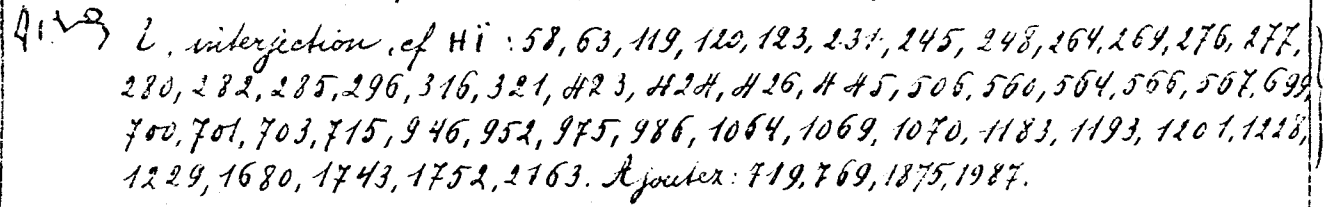 i, interjection, cf HÏ : 58, 63, 119, 120, 123, 231, 245, 248, 264, 269, 276, 277,
280, 282, 285, 296, 316, 321, 423, 424, 426, 445, 506, 560, 564, 566, 567, 699,
700, 701, 703, 715, 946, 952, 975, 986, 1064, 1069, 1070, 1183, 1193, 1201, 1228,
1229, 1680, 1743, 1752, 2163. Ajoutez : 719, 769, 1875, 1987.